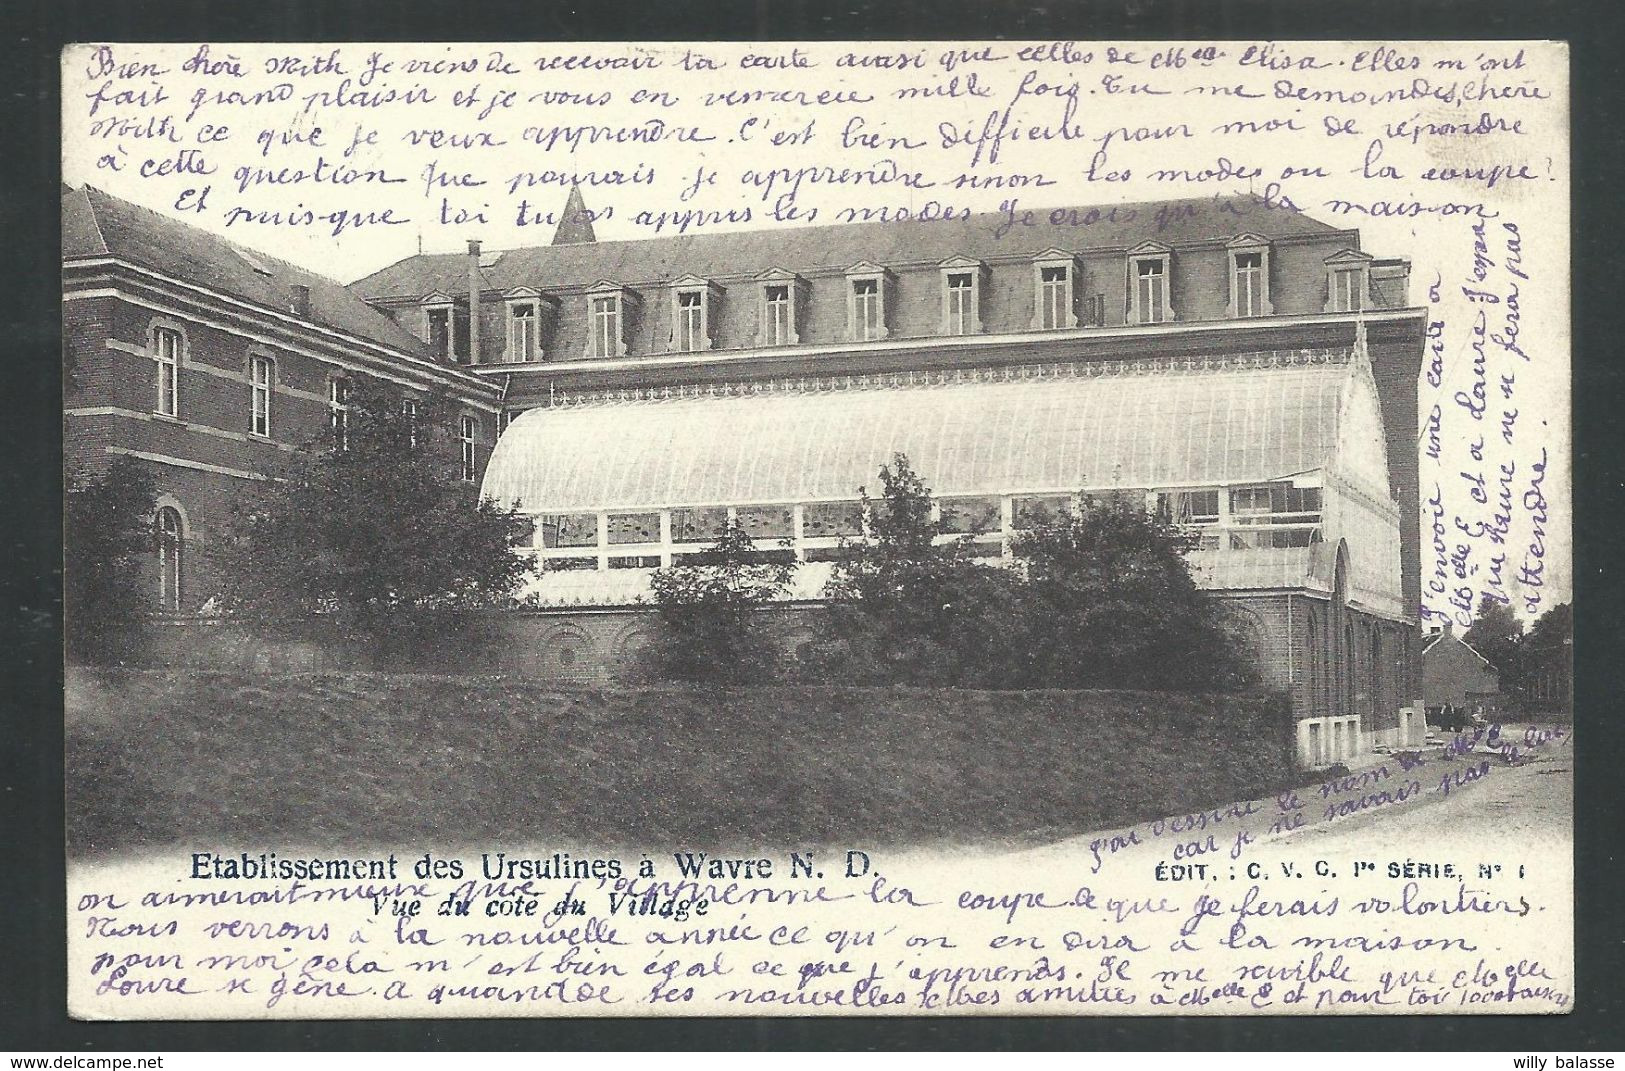 Bien chère Mith Je viens de recevoir ta carte aussi que celles de Melle Elisa. Elles m'ont
fait grand plaisir et je vous en remercie mille fois. Tu me demandes, chère
Mith ce que je veux apprendre. C'est bien difficile pour moi de répondre
à cette question Que pourrais-je apprendre sinon les modes ou la coupe?
Et puisque toi tu as appris les modes. Je crois qu'à la maison
J'envoie une carte a
Melle E et à Laure J'espè
que Laure ne se fera pas
attendre.
J'ai dessiné le nom de Melle E
car je ne savais pas le lire
Etablissement des Ursulines à Wavre N. D.
ÉDIT. : C. V. C. Ire SÉRIE, N° 1
Vue du côté du Village
on aimerait mieux que j'apprenne la coupe ce que je ferais volontiers.
Nous verrons à la nouvelle année ce qu'on en dira à la maison.
pour moi cela m'est bien égal ce que j'apprends. Il me semble que Melle
Laure se gêne. a quand de ses nouvelles? Mes amitiés à Melle E et pour toi 1000 baisers
willy balasse